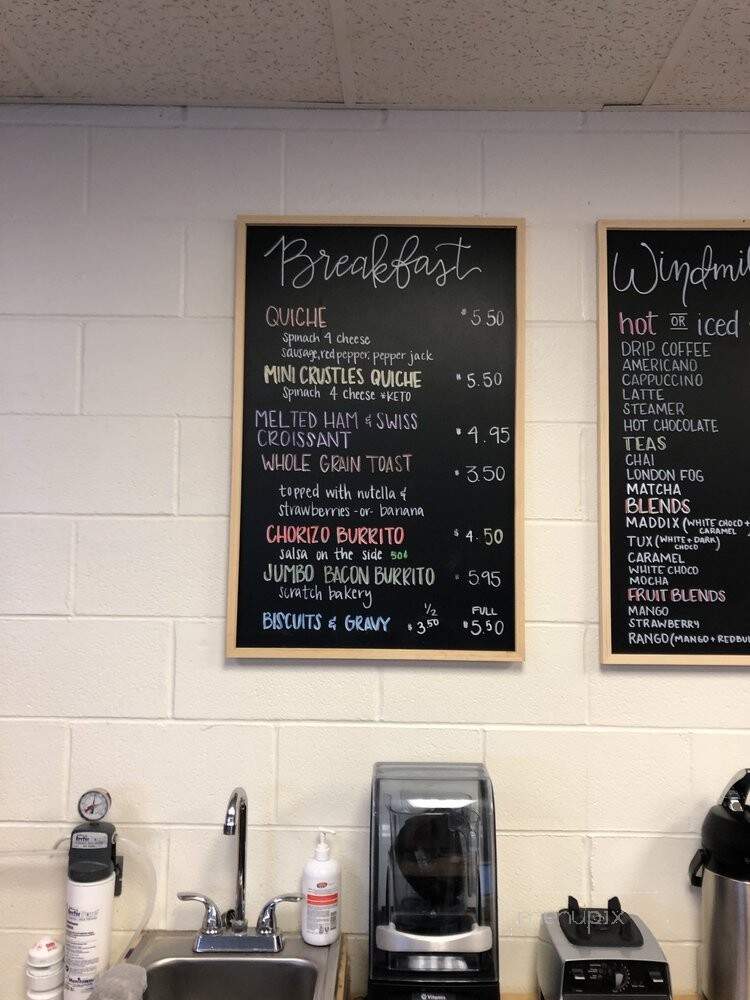 Breakfast
QUICHE $5.50
spinach & cheese
sausage, red pepper, pepper jack
MINI CRUSTLES QUICHE $5.50
Spinach & cheese *KETO
MELTED HAM & SWISS
CROISSANT $4.95
WHOLE GRAIN TOAST $3.50
topped with nutella &
strawberries -or- banana
CHORIZO BURRITO $4.50
salsa on the side 50¢
JUMBO BACON BURRITO $5.95
scratch bakery
1/2 FULL
BISCUITS & GRAVY $3.50 $5.50
Windmil
hot OR iced
DRIP COFFEE
AMERICANO
CAPPUCCINO
LATTE
STEAMER
HOT CHOCOLATE
TEAS
CHAI
LONDON FOG
MATCHA
BLENDS
MADDIX (WHITE CHOCO +
CARAMEL
TUX (WHITE + DARK)
CHOCO
CARAMEL
WHITE CHOCO
MOCHA
FRUIT BLENDS
MANGO
STRAWBERRY
RANGO (MANGO + REDBU
menupix
Vitamix